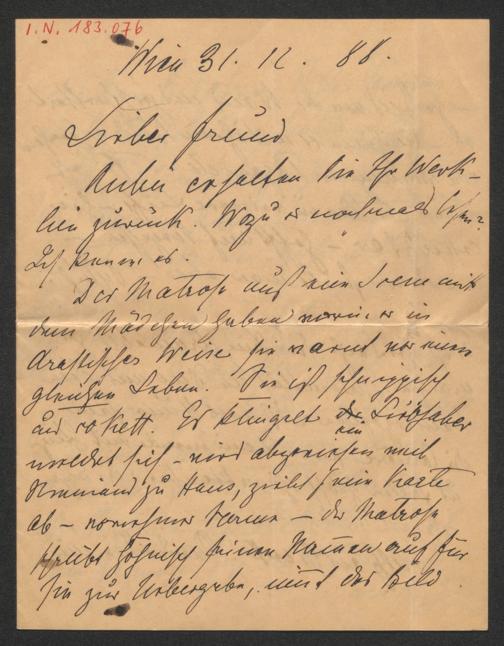 I.N. 183.076
Wien 31. 12. 88.
Lieber Freund
Anbei erhalten Sie Ihr Werk-
lein zurück. Wozu es nochmals lesen?
Ich kenne es.
Der Matrose muß eine Scene mit
dem Mädchen haben worin er in
drastischer Weise sie warnt vor einem
gleichen Leben. Sie ist schnippisch
und kokett. Es klingelt der Liebhaber
ein
meldet sich – wird abgewiesen weil
Niemand zu Haus, gibt seine Karte
ab – vornehmer Name – der Matrose
schreibt höhnisch seinen Namen auf für
sie zur Übergabe, nimmt das Bild